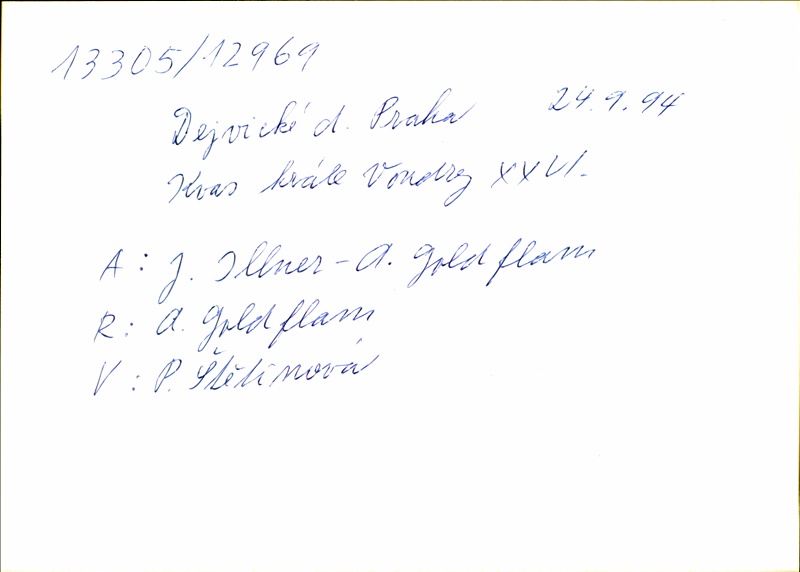 13305/12969
Dejvické d. Praha 24.9.94
Kvas krále Vondry XXVI.
A: J. Illner - A. Goldflam
R: A. Goldflam
V: P. Štětinová